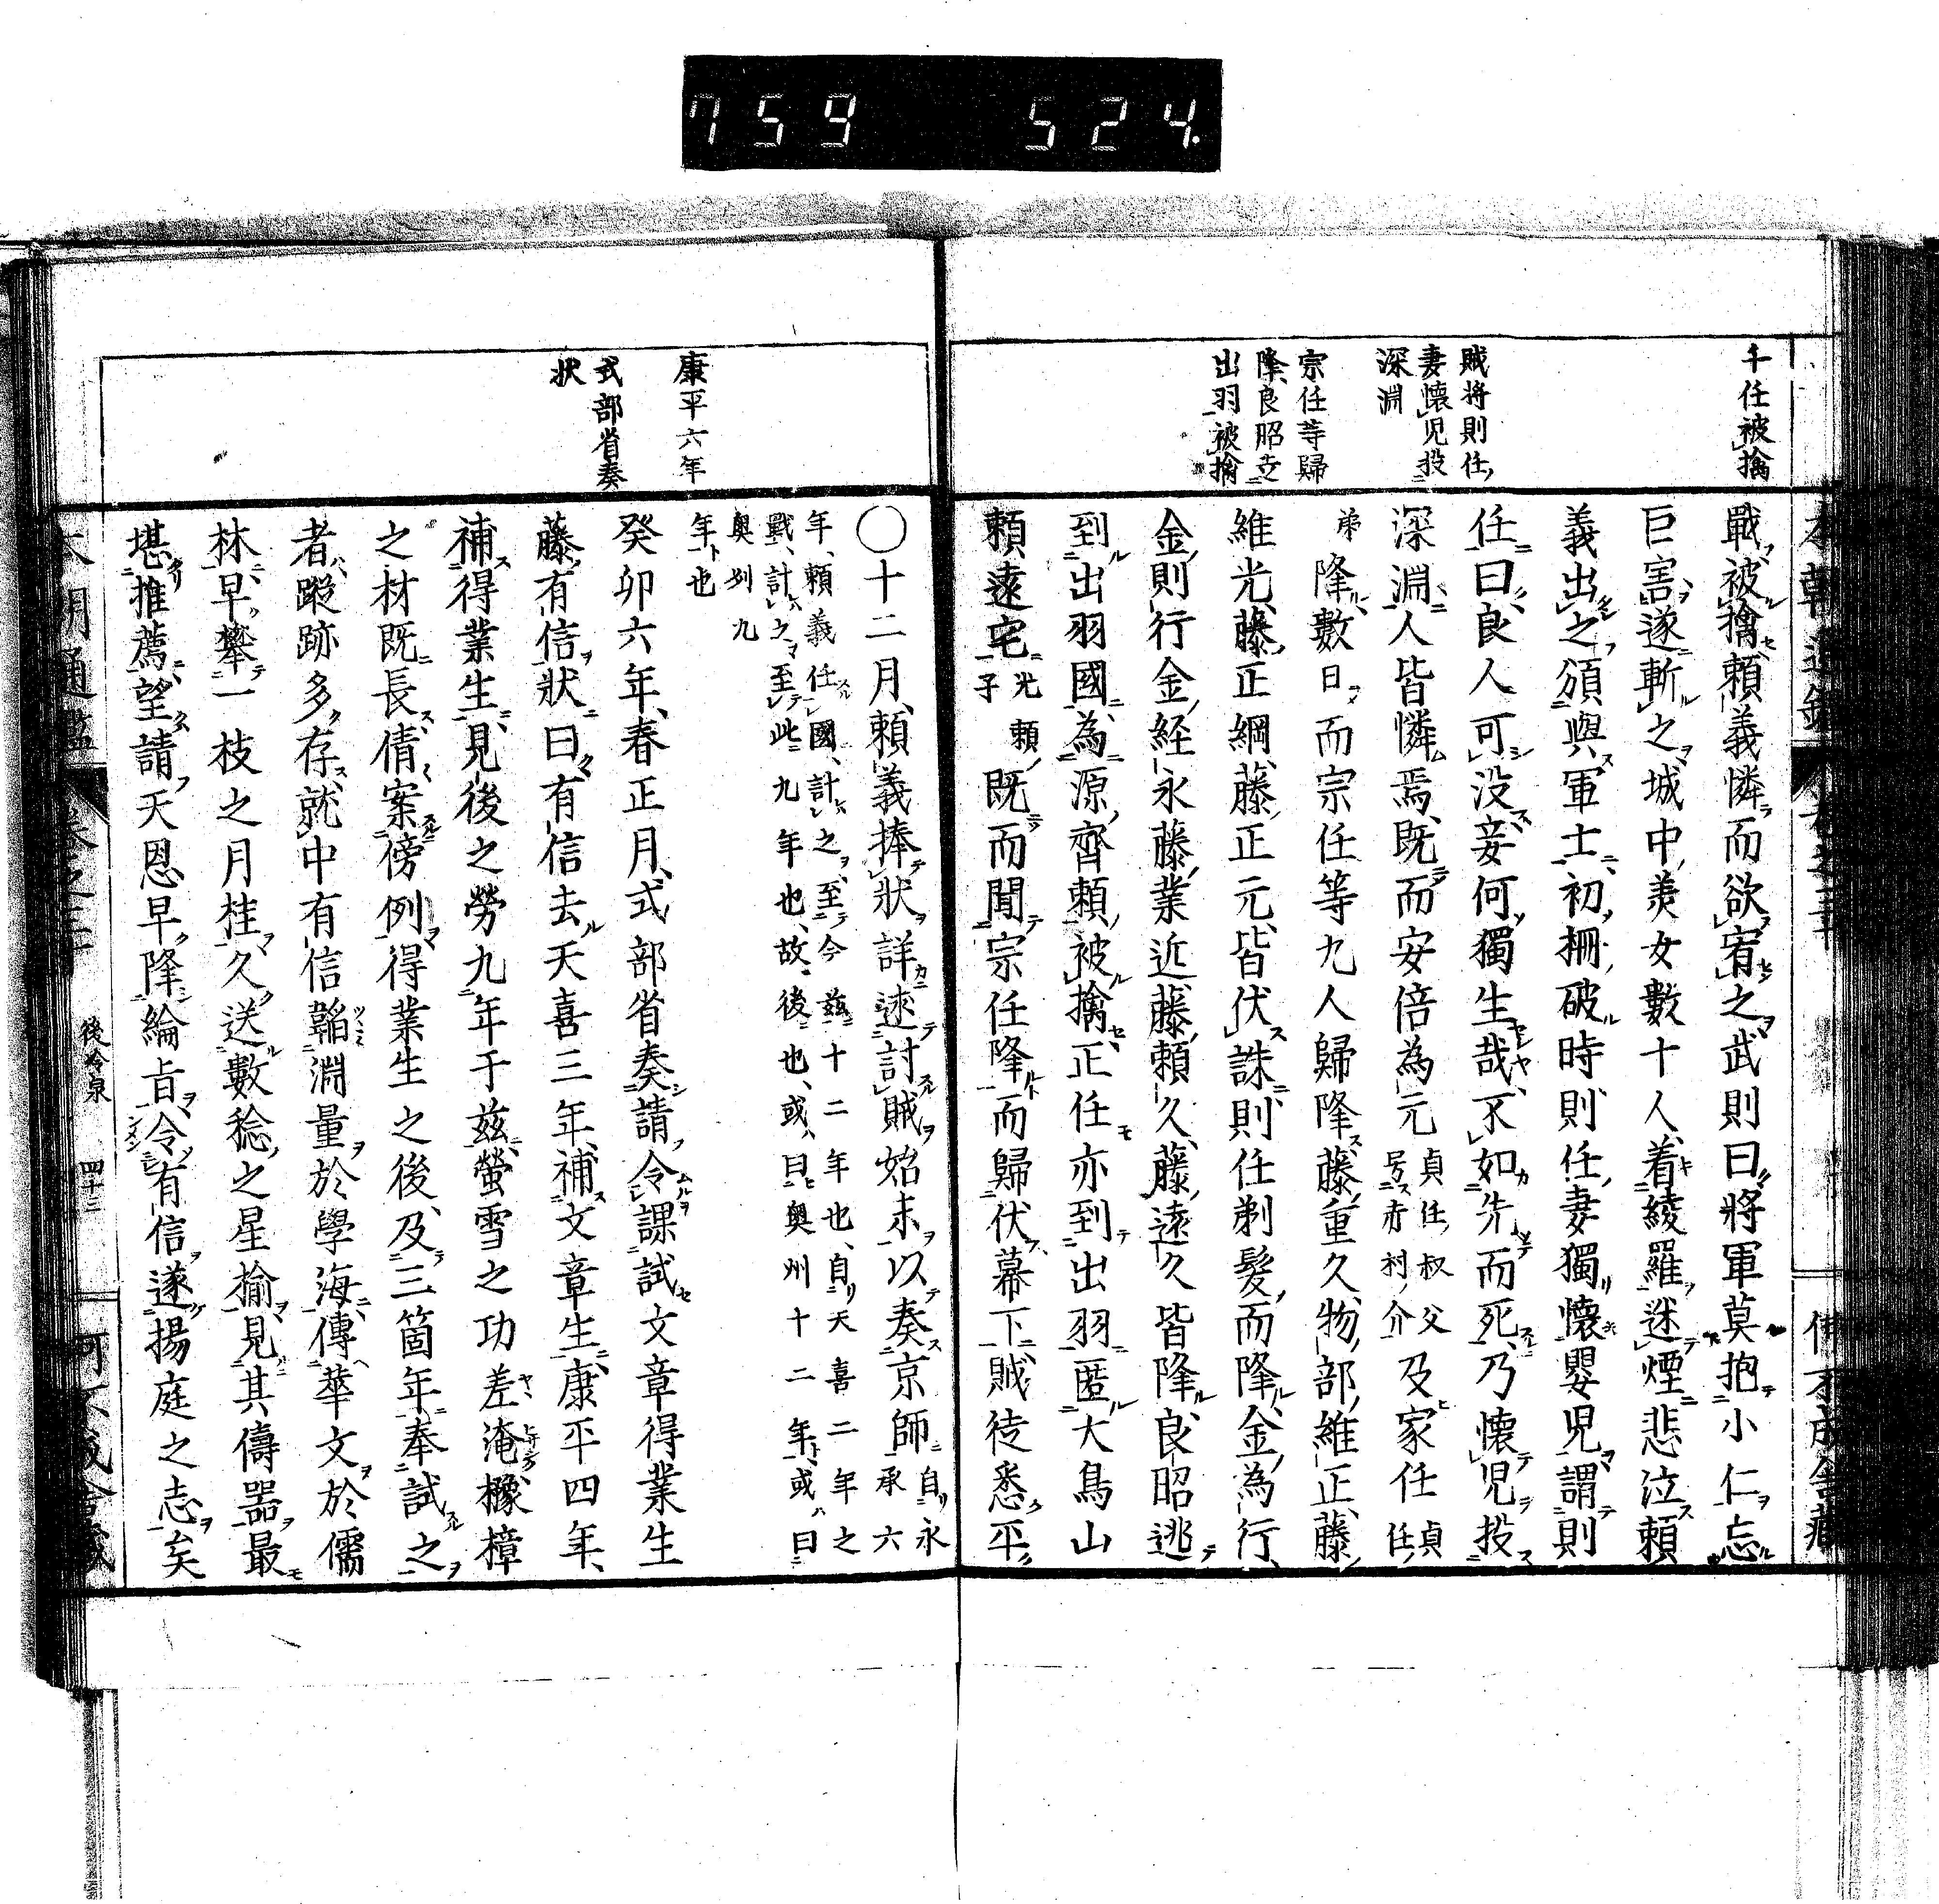 759 524.
千任被擒
賊将則任
妻懷児投
深淵
宗任等歸
降良昭
出羽被擒
戰被擒頼義憐而欲宥之武則曰將軍莫抱小仁忘
巨害遂斬之城中美女數十人着綾羅迷煙悲泣頼
義出之頒與軍士初柵破時則任妻獨懷嬰児謂則
任曰良人可没妾何獨生哉不如先而死乃懷児投
深淵人皆憐焉既而安倍為元貞任叔父号赤村介及家任貞任
弟降數日而宗任等九人歸降藤重久物部維正藤
維光藤正綱藤正元皆伏誅則任剃髮而降金為行
金則行金経永藤業近藤頼久藤遠久皆降良昭逃
到出羽國為源齊頼被擒正任亦到出羽匿大鳥山
頼遠宅光頼子既而聞宗任降而歸伏幕下賊徒悉平
康平六年
式部省奏
状
〇十二月頼義捧状詳述討賊始末以奏京師自永承六
年頼義任國計之至今茲十二年也自天喜二年之
戰計之至此九年也故後也或曰奥州十二年或曰
奥州九
年也
癸卯六年春正月式部省奏請令課試文章得業生
藤有信状曰有信去天喜三年補文章生康平四年
補得業生見後之勞九年于兹螢雪之功差淹櫲樟
之材既長倩案傍例得業生之後及三箇年奉試之
者蹤跡多存就中有信韜淵量於學海傳華文於儒
林早攀一枝之月桂久送數稔之星楡見其儔噐最
堪推薦望請天恩早降綸旨令有信遂揚庭之志矣
後冷泉 四十三